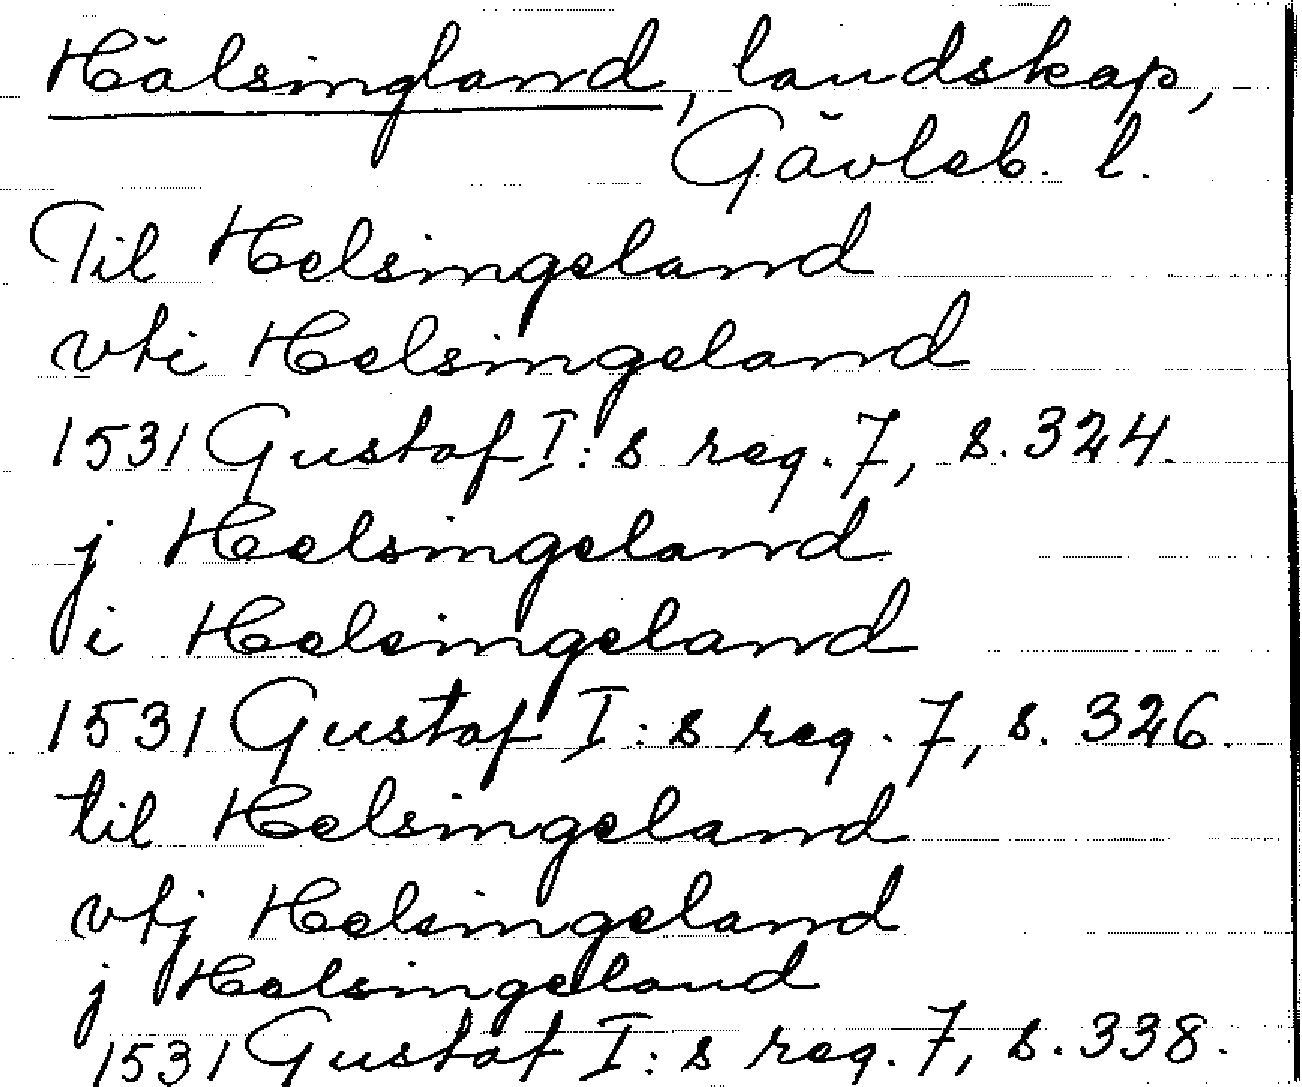 Hälsingland, landskap,
Gävleb. l.
Til Helsingeland
vti Helsingeland
1531 Gustaf I:s reg. 7, s. 324.
j Helsingeland
i Helsingeland
1531 Gustaf I:s reg. 7, s. 326.
til Helsingeland
vtj Helsingeland
j Helsingeland
1531 Gustaf I:s reg. 7, s. 338.